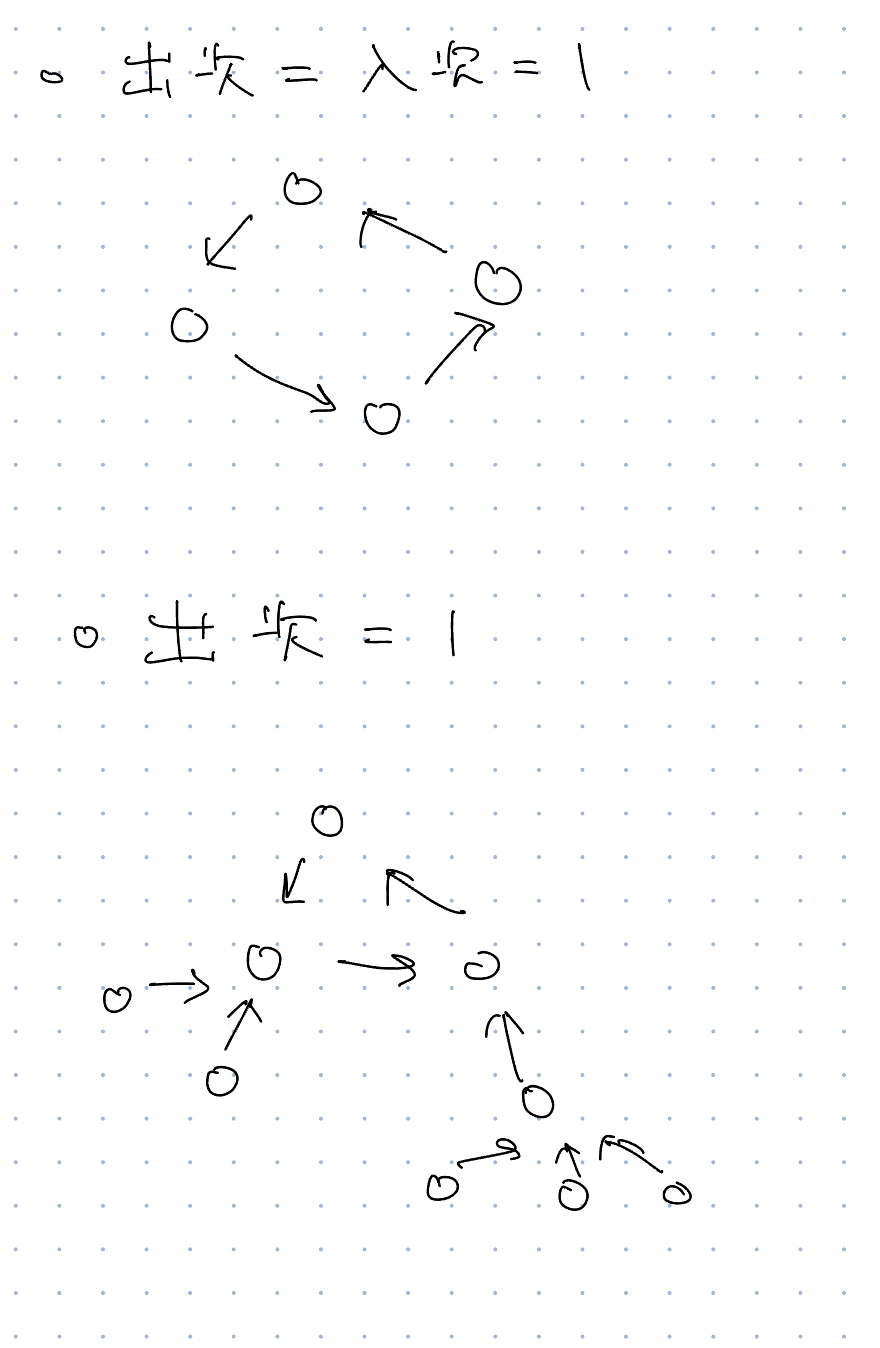 ○ 出次 = 入次 = 1
○ 出次 = 1